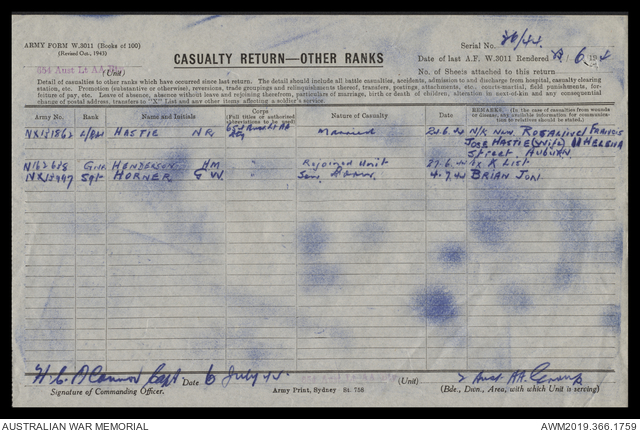 ARMY FORM W.3011 (Books of 100)
(Revised Oct., 1943)
Serial No. 26/44
654 Aust Lt AA
(Unit)
CASUALTY RETURN—OTHER RANKS
Date of last A.F. W.3011 Rendered 6 194
No. of Sheets attached to this return
Detail of casualties to other ranks which have occurred since last return. The detail should include all battle casualties, accidents, admission to and discharge from hospital, casualty clearing
station, etc. Promotion (substantive or otherwise), reversions, trade groupings and relinquishments thereof, transfers, postings, attachments, etc., courts-martial, field punishments, for-
feiture of pay, etc. Leave of absence, absence without leave and rejoining therefrom, marriage, birth or death of children, alteration in next-of-kin and any consequential
change of postal address, transfers to "X" List and any other items affecting a soldier's service.
Army No. Rank Name and Initials Corps (Full titles or authorised abbreviations to be used) Nature of Casualty Date REMARKS (In the case of casualties from wounds or disease, any available information for communication to relatives should be stated.)
HASTIE Married N/K Now ROSALIND FRANCIS
JOSE HASTIE (Wife) HELENA
Street AUBURN
Gnr HENDERSON HM " Rejoined Unit 27.6.44 Ex X List
Sgt HORNER G W " Son 4.7.44 BRIAN JON
Capt Date 6 July 44 (Unit) 2 Aust AA Group
Signature of Commanding Officer. Army Print, Sydney (Bde., Dun., Area, with which Unit is serving)
AUSTRALIAN WAR MEMORIAL AWM2019.366.1759